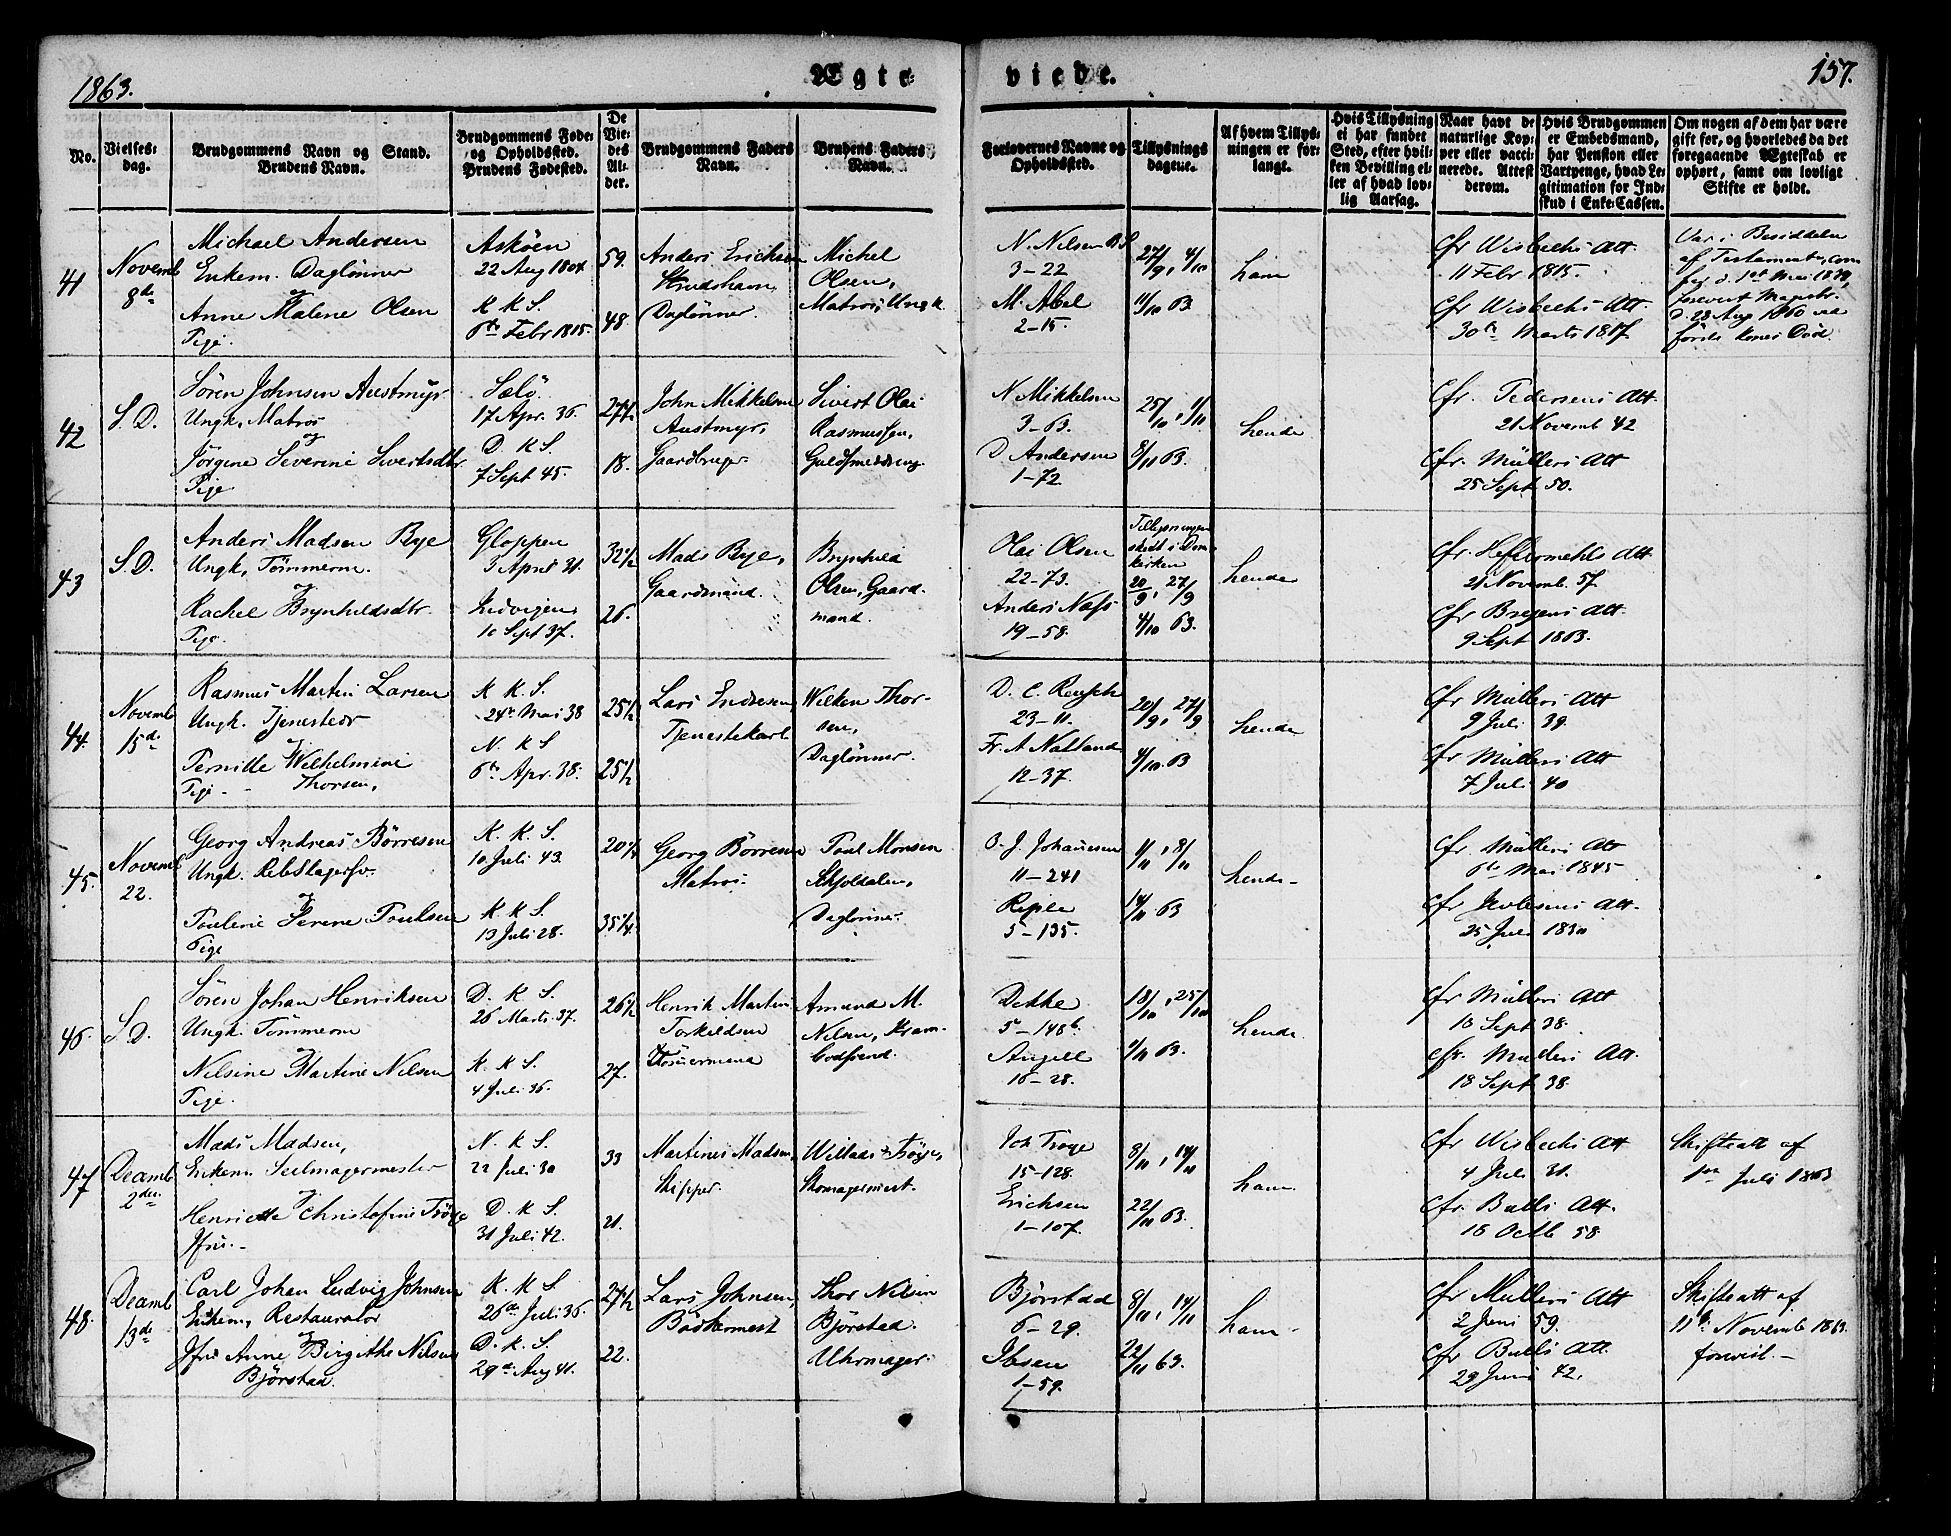 1863.
Ægte-
viede.
157.
No.
Vielses-
dag.
Brudgommens Navn og Stand.
Brudens Navn.
Brudgommens Føde-
og Opholdssted.
Brudens Fødested.
De
Vie-
des
Al-
der.
Brudgommens Faders
Navn.
Brudens Faders
Navn.
Forlovernes Navne og
Opholdssted.
Tillysnings
dagene.
Af hvem Tillys-
ningen er for-
langt.
Hvis Tillysning
ei har fundet
Sted, efter hvil-
ken Bevilling el-
ler af hvad lov-
lig Aarsag.
Naar havt de
naturlige Kop-
per eller vacci-
nerede. Attest
derom.
Hvis Brudgommen
er Embedsmand,
har Pension eller
Vartpenge, hvad Le-
gitimation for Ind-
skud i Enke-Cassen.
Om nogen af dem har være
gift før, og hvorledes da det
foregaaende Ægteskab er
ophørt, samt om lovligt
Skifte er holdt.
41
Novemb
8de
Michael Andersen
Enkem. Daglønner
og
Anne Malene Olsen
Pige.
Askøen
22 Aug 1804
K K S.
6te Febr 1815.
59.
48.
Anders Ericksen
Daglønner.
Michel
Olsen,
Matros, Ungk.
N. Nilsen
3-22
M. Abel
2-15.
27/9, 4/10
11/10 63
ham
Cfr Wisbechs Att.
11 Febr 1815.
Cfr Wisbechs Att.
30te Marts 1817.
Var i Besiddelse
af Testament, con
d. 1ste Mai 1839,
d. 28 Aug 1860
første Kones Død.
42
S. D.
Sören Johnsen Austmyr
Ungk. Matros
og
Jörgine Severine Sivertsdtr
Pige
Selö
17 Apr. 36.
D K S.
7 Sept 45.
27½
18.
John Mikkelsen
Austmyr,
Gaardbruger.
Sivert Olai
Rasmussen,
N Mikkelsen
3-63.
D Andersen
1-72.
25/10, 1/11
8/11 63.
hende
Cfr. Pedersens Att.
21 Novemb 42
Cfr. Müllers Att
25 Sept 50.
43
S. D.
Anders Madsen Bye
Ungk, Tömmerm.
og
Rachel Brynhildsdtr.
Pige.
Gloppen
5 April 31.
10 Sept 37.
32½
26.
Mads Bye,
Gaardmand.
Brynhild
Olsen, Gaard-
mand.
Olai Olsen
22-73.
Anders Næss
19-58.
Tillysningen
skedt i Dom-
kirken
20/9, 27/9
4/10 63.
hende
Cfr. Heftermehls Att
21 Novemb. 57.
Cfr Att.
9 Sept 1863.
44.
Novemb
15de
Rasmus Martin Larsen
Ungk. Tjenestedr
og
Pernille Wilhelmine
Pige - Thorsen,
K K. S.
24de Mai 38
N. K S
6te Apr. 38.
25½
25½
Lars Endresen
Tjenestekarl
Wilken Thor-
sen,
Daglönner.
D. C. Reusch
23-11.
Fr. A Natland
12-37.
20/9, 27/9
4/10. 63
hende
Cfr Müllers Att
9 Juli 39.
Cfr Müllers Att
7 Juli 40
45.
Novemb
22.
Georg Andreas Börresen
Ungk. Rebslagersv.
og
Poulene Serene Poulsen
Pige
K. K. S.
10 Juli 43.
K K S.
13 Juli 28.
20¼
35¼.
Georg Börresen
Matros.
Poul Monsen
Skjoldalen,
Daglönner.
O. J. Johansen
11-241
Reple
5-135.
1/11, 8/11
14/11 63
hende-
Cfr. Müllers Att
6te Mai 1845
Cfr Att.
25 Juli 1830
46.
S. D.
Sören Johan Henriksen
Ungk. Tömmerm
og
Nilsine Martine Nilsen
Pige.
D. K S.
26 Marts. 37.
K. K S.
4 Juli 36.
26½
27.
Henrik Martin
Torkildsen
Tömmermand
Amund M.
Nilsen, Kram-
bodsvend.
Dekke
5-148b.
Angell
16-28.
18/10, 25/10
1/11 63.
hende
Cfr Müllers Att
18 Sept 38.
Cfr. Müllers Att.
18 Sept 38.
47
Decemb
2den
Mads Madsen,
Enkem. Seilmagermester
og
Henriette Christofine Tröye
Jfru.-
N. K S.
22 Juli 30
D. K S.
31 Juli 42.
33
21.
Martinus Madsen,
Skipper.
Willads Tröye,
Skomagermest.
Joh Troye
15-128.
Erichsen
1-107.
8/11, 14/11
22/11 63.
ham.
Cfr Wisbechs Att
4 Juli 31.
Cfr. Bulls Att.
18 Octb 58
Skifteatt af
1ste Juli 1863
48.
Decemb
13de
Carl Johan Ludvig Johnsen
Enkem, Restauratör
og
Jfru Anne Birgithe Nilsen
Björstad.
K. K S
26de Juli 36.
D. K. S.
29de Aug 41.
27½
22.
Lars Johnsen,
Bödkermest
Thor Nilsen
Björstad.
Uhrmager.
Björstad
6-29.
Ibsen
1-59.
8/11, 14/11
22/11 63.
ham-
Cfr Müllers Att
2 Juni 59.
Cfr Bulls Att.
29 Juni 42.
Skifteatt af
11te Novemb 1863.
forevist.-